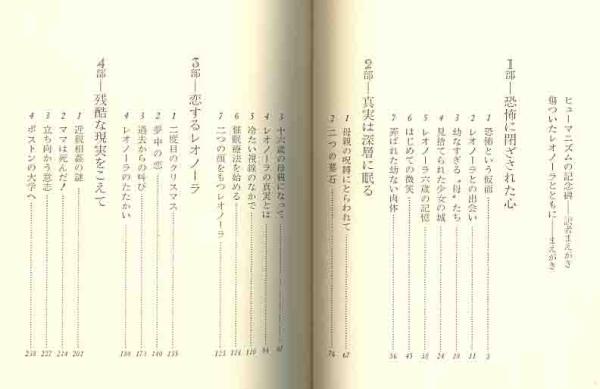 ヒューマニズムの記念碑——訳者まえがき
傷ついたレオノーラとともに——まえがき
1部—恐怖に閉ざされた心
1 恐怖という仮面 3
2 レオノーラとの出会い 11
3 幼なすぎる〝母〟たち 19
4 見捨てられた少女の城 24
5 レオノーラ六歳の記憶 38
6 はじめての微笑 45
7 弄ばれた幼い肉体 56
2部—真実は深層に眠る
1 母親の呪縛にとらわれて 67
2 二つの墓石 76
3 十六歳の母親になって
4 レオノーラの真実とは 94
5 冷たい視線のなかで 110
6 催眠療法を始める
7 二つの顔をもつレオノーラ 125
3部—恋するレオノーラ
1 二度目のクリスマス 135
2 夢中の恋 140
3 過去からの叫び 173
4 レオノーラのたたかい
4部—残酷な現実をこえて
1 近親相姦の謎 202
2 ママは死んだ! 214
3 立ち向かう意志 227
4 ボストンの大学へ 238